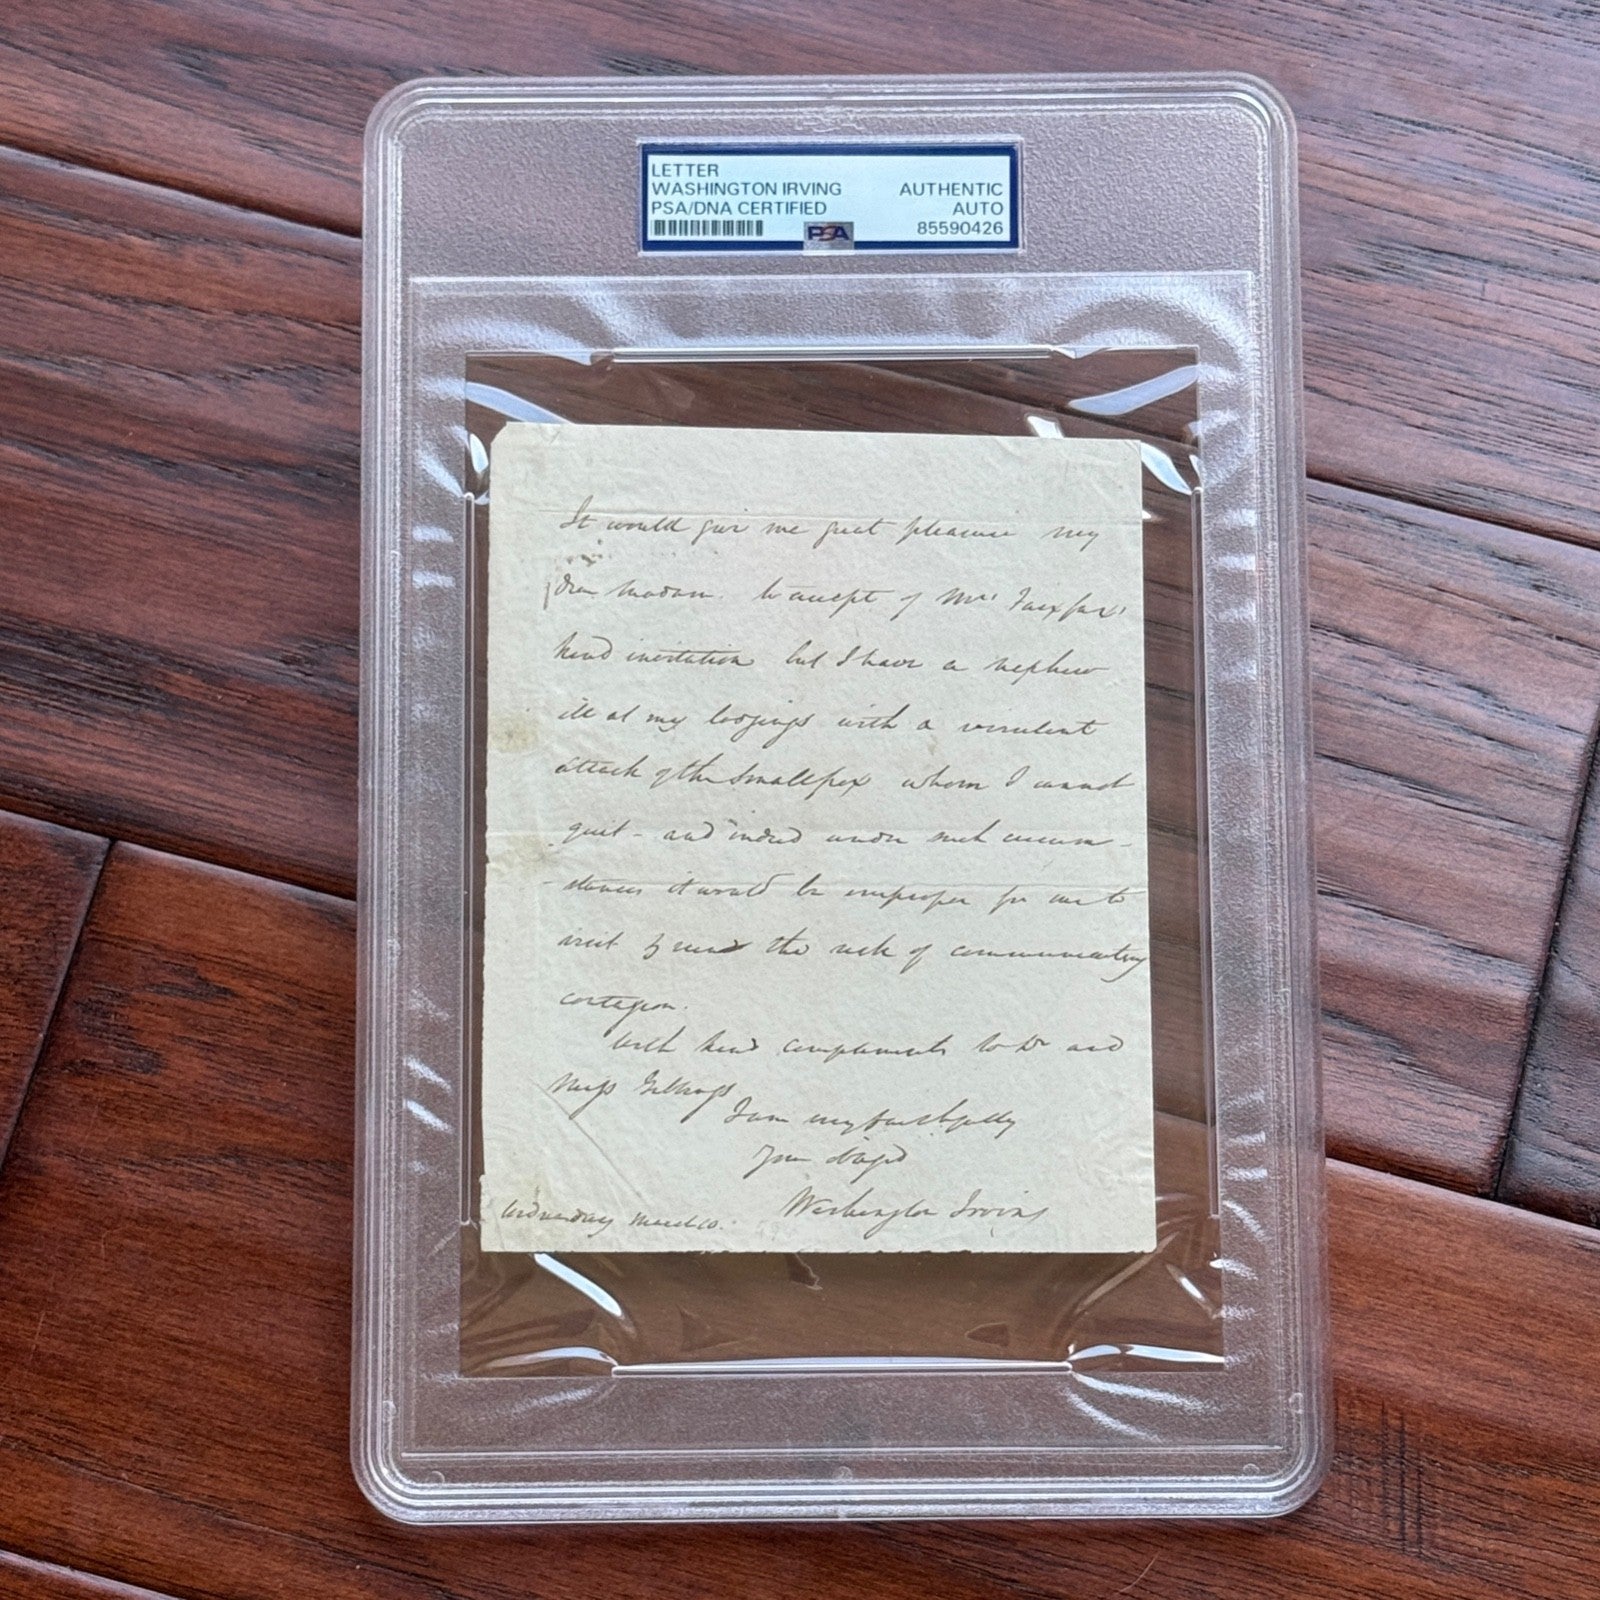 LETTER
WASHINGTON IRVING
PSA/DNA CERTIFIED
AUTHENTIC
AUTO
85590426
PSA
It would give me great pleasure my
dear Madam. to accept of Mrs Fairfax'
kind invitation but I have a nephew
ill at my lodgings with a virulent
attack of the Small pox whom I cannot
quit - and indeed under such circum-
-stances it would be improper for me to
visit & run the risk of communicating
contagion.
With kind compliments to Dr and
Miss
I am very faithfully
Your obliged
Washington Irving
Wednesday March 10.